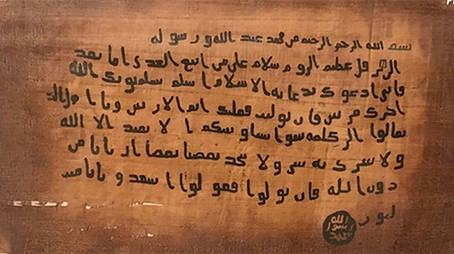 بسم الله الرحمن الرحيم من محمد عبد الله ورسوله
الى هرقل عظيم الروم سلام على من اتبع الهدى اما بعد
فاني ادعوك بدعاية الاسلام اسلم تسلم يوتك الله
اجرك مرتين فان توليت فعليك اثم الاريسين ويا
تعالوا الى كلمة سوا بيننا وبينكم الا نعبد الا الله
ولا نشرك به شيا ولا يتخذ بعضنا بعضا اربابا من
دون الله فان تولوا فقولوا اشهدوا بانا مس
لمون
الله
رسول
محمد